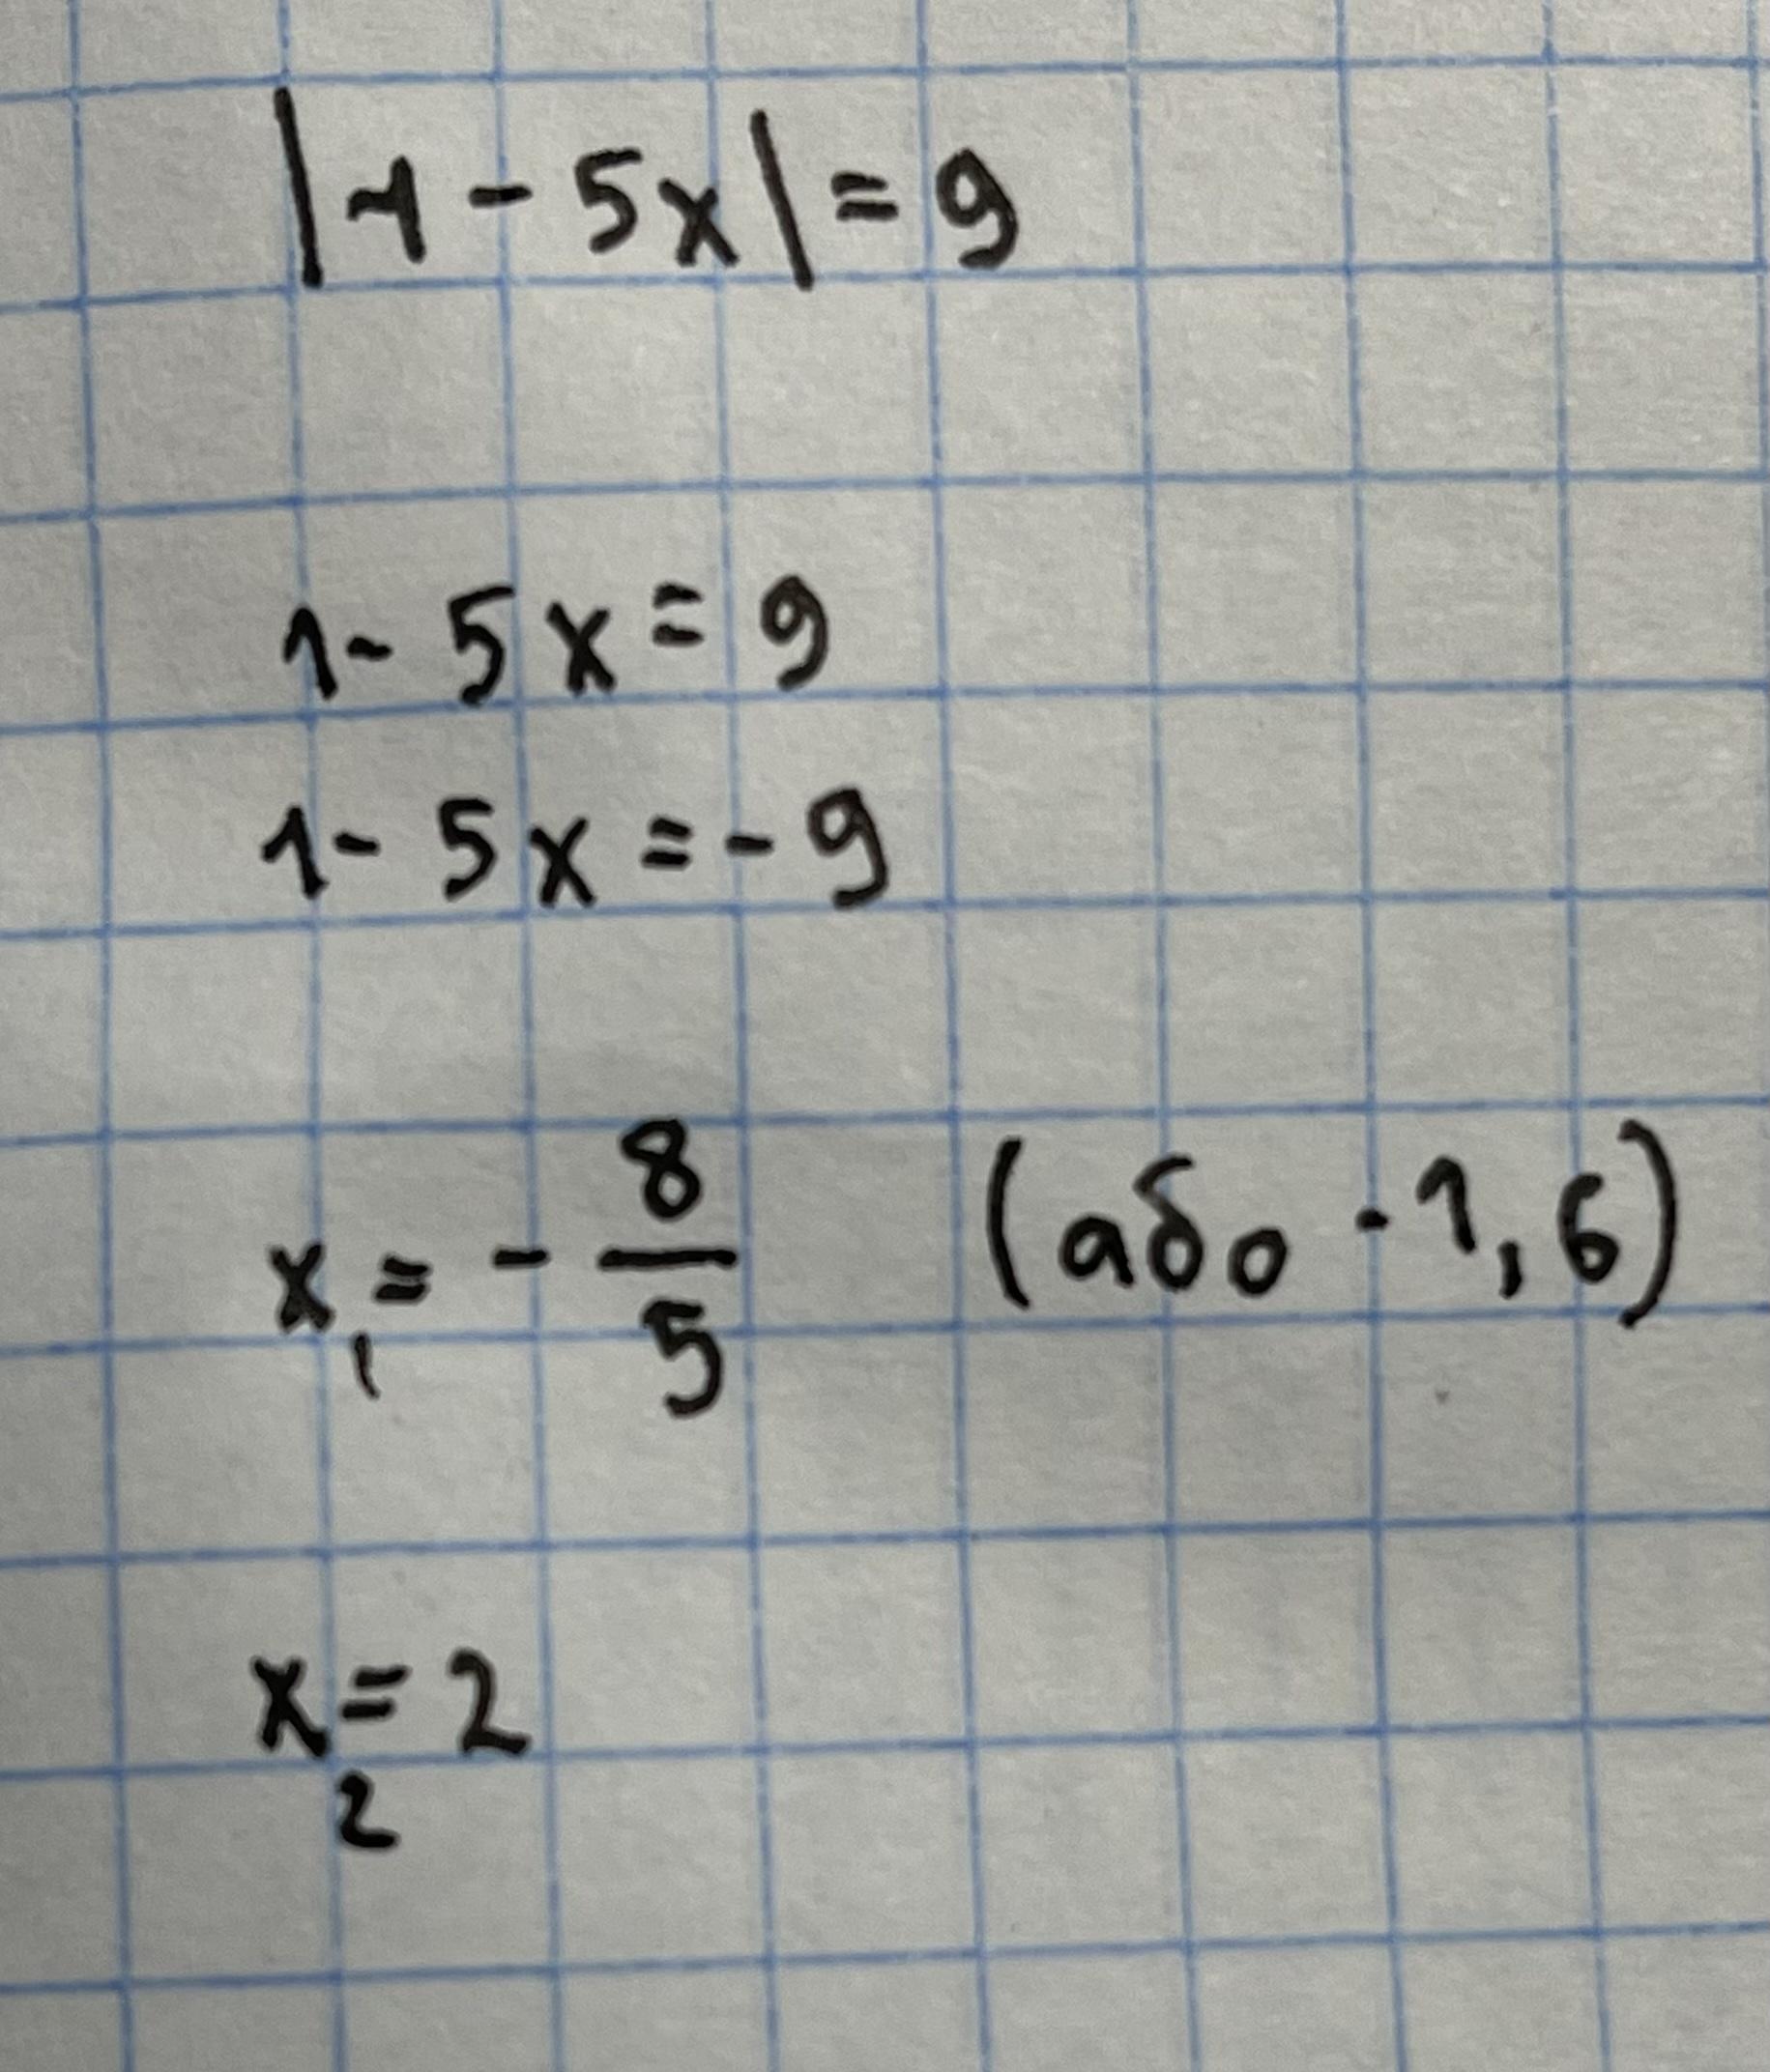 |1 - 5x| = 9
1 - 5x = 9
1 - 5x = -9
x₁ = - 8/5 (або -1,6)
x₂ = 2